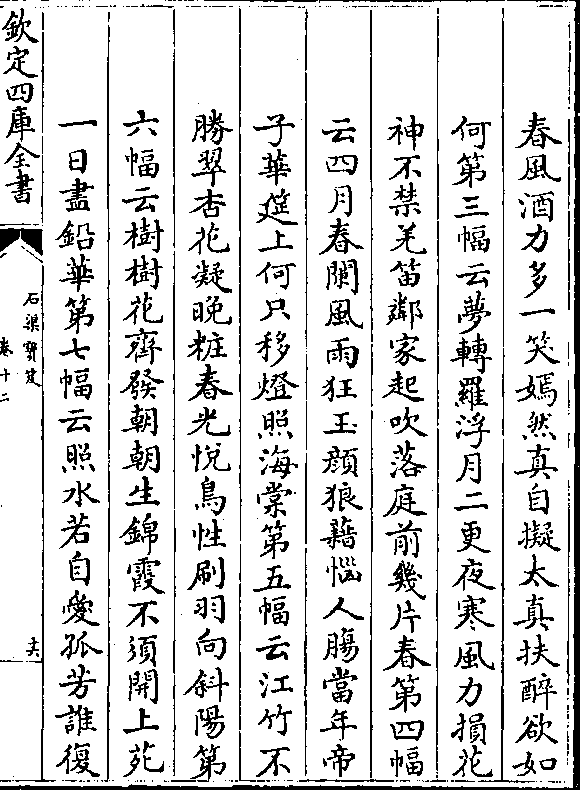 春風酒力多一笑嫣然真自擬太真扶醉欲如
何第三幅云夢轉羅浮月二更夜寒風力損花
神不禁羌笛鄰家起吹落庭前幾片春第四幅
云四月春闌風雨狂玉顔狼藉惱人膓當年帝
子華筵上何只移燈照海棠第五幅云江竹不
勝翠杏花凝晚粧春光悅鳥性刷羽向斜陽第
六幅云樹樹花齊發朝朝生錦霞不須開上苑
一日盡鉛華第七幅云照水若自愛孤芳誰復
欽定四庫全書
石渠寶笈
卷十二
六